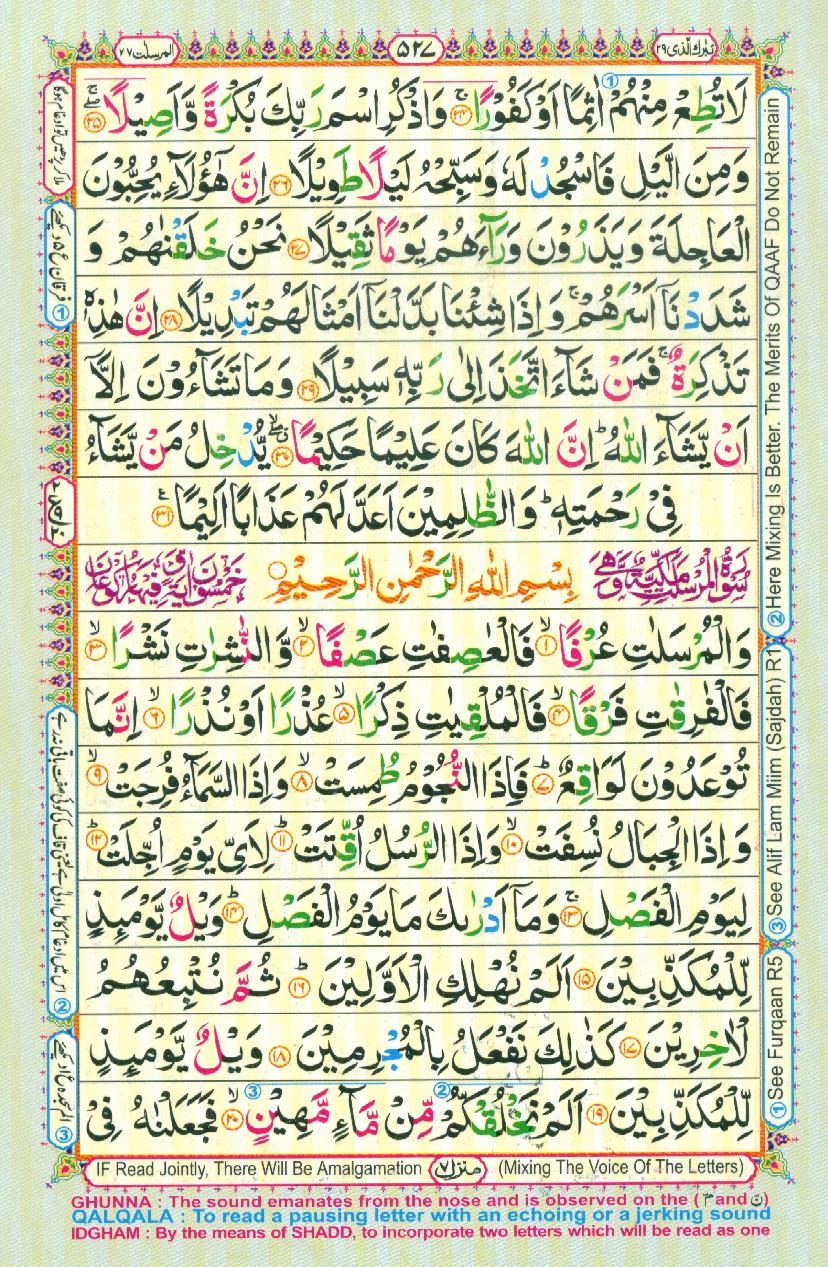 المرسلت ٧٧
٥٢٧
تبرك الذی ٢٩
لَا تُطِعْ مِنْهُمْ اٰثِمًا اَوْ كَفُوْرًا ۚ۝٢٤ وَاذْكُرِ اسْمَ رَبِّكَ بُكْرَةً وَّاَصِيْلًا ۝٢٥
وَمِنَ الَّيْلِ فَاسْجُدْ لَهٗ وَسَبِّحْهُ لَيْلًا طَوِيْلًا ۝٢٦ اِنَّ هٰٓؤُلَآءِ يُحِبُّوْنَ
الْعَاجِلَةَ وَيَذَرُوْنَ وَرَآءَهُمْ يَوْمًا ثَقِيْلًا ۝٢٧ نَحْنُ خَلَقْنٰهُمْ وَ
شَدَدْنَاۤ اَسْرَهُمْ ۚ وَاِذَا شِئْنَا بَدَّلْنَاۤ اَمْثَالَهُمْ تَبْدِيْلًا ۝٢٨ اِنَّ هٰذِهٖ
تَذْكِرَةٌ ۚ فَمَنْ شَآءَ اتَّخَذَ اِلٰى رَبِّهٖ سَبِيْلًا ۝٢٩ وَمَا تَشَآءُوْنَ اِلَّاۤ
اَنْ يَّشَآءَ اللّٰهُ ؕ اِنَّ اللّٰهَ كَانَ عَلِيْمًا حَكِيْمًا ۝٣٠ يُّدْخِلُ مَنْ يَّشَآءُ
فِيْ رَحْمَتِهٖ ؕ وَالظّٰلِمِيْنَ اَعَدَّ لَهُمْ عَذَابًا اَلِيْمًا ۝٣١
سُوْرَةُ الْمُرْسَلٰتِ مَكِّيَّةٌ وَّهِيَ بِسْمِ اللّٰهِ الرَّحْمٰنِ الرَّحِيْمِ خَمْسُوْنَ اٰيَةً وَّفِيْهَا رُكُوْعَانِ
وَالْمُرْسَلٰتِ عُرْفًا ۙ۝١ فَالْعٰصِفٰتِ عَصْفًا ۙ۝٢ وَّالنّٰشِرٰتِ نَشْرًا ۙ۝٣
فَالْفٰرِقٰتِ فَرْقًا ۙ۝٤ فَالْمُلْقِيٰتِ ذِكْرًا ۙ۝٥ عُذْرًا اَوْ نُذْرًا ۙ۝٦ اِنَّمَا
تُوْعَدُوْنَ لَوَاقِعٌ ؕ۝٧ فَاِذَا النُّجُوْمُ طُمِسَتْ ۙ۝٨ وَاِذَا السَّمَآءُ فُرِجَتْ ۙ۝٩
وَاِذَا الْجِبَالُ نُسِفَتْ ۙ۝١٠ وَاِذَا الرُّسُلُ اُقِّتَتْ ؕ۝١١ لِاَيِّ يَوْمٍ اُجِّلَتْ ؕ۝١٢
لِيَوْمِ الْفَصْلِ ۚ۝١٣ وَمَاۤ اَدْرٰىكَ مَا يَوْمُ الْفَصْلِ ؕ۝١٤ وَيْلٌ يَّوْمَئِذٍ
لِّلْمُكَذِّبِيْنَ ۝١٥ اَلَمْ نُهْلِكِ الْاَوَّلِيْنَ ؕ۝١٦ ثُمَّ نُتْبِعُهُمُ
الْاٰخِرِيْنَ ۝١٧ كَذٰلِكَ نَفْعَلُ بِالْمُجْرِمِيْنَ ۝١٨ وَيْلٌ يَّوْمَئِذٍ
لِّلْمُكَذِّبِيْنَ ۝١٩ اَلَمْ نَخْلُقْكُّمْ مِّنْ مَّآءٍ مَّهِيْنٍ ۙ۝٢٠ فَجَعَلْنٰهُ فِيْ
② Here Mixing Is Better. The Merits Of QAAF Do Not Remain
③ See Alif Lam Miim (Sajdah) R1
① See Furqaan R5
IF Read Jointly, There Will Be Amalgamation منزل ٧ (Mixing The Voice Of The Letters)
GHUNNA : The sound emanates from the nose and is observed on the ( م and ن )
QALQALA : To read a pausing letter with an echoing or a jerking sound
IDGHAM : By the means of SHADD, to incorporate two letters which will be read as one